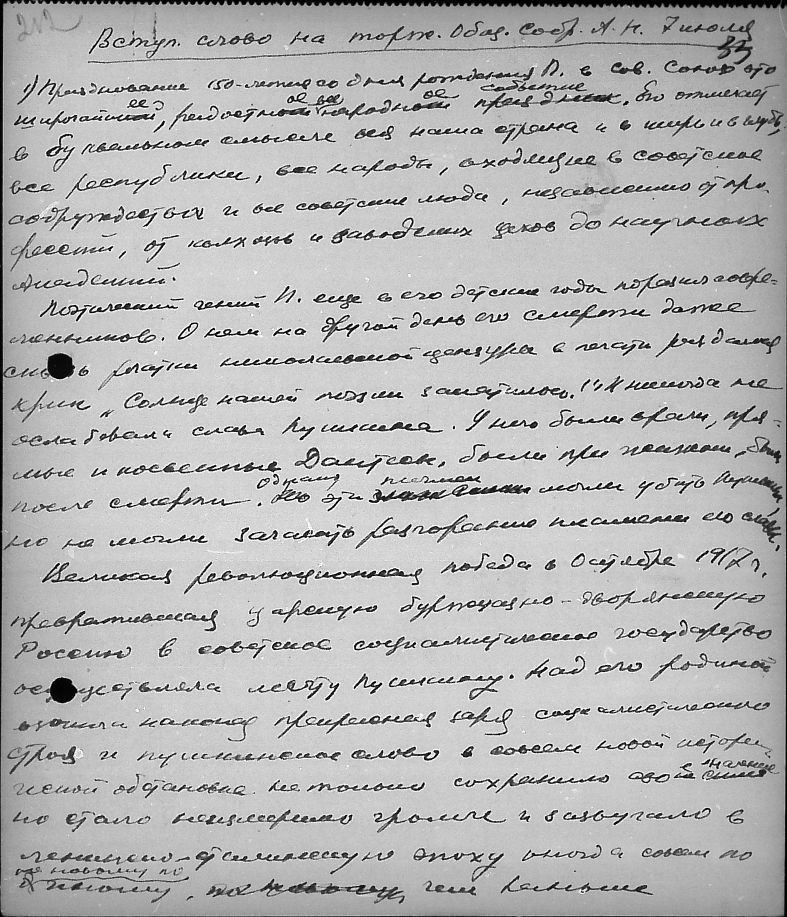 212
Вступ. слово на торж. Общ. Собр. А. Н. 7 июля
33
1) Празднование 150-летия со дня рождения П. в Сов. Союзе это
широчайшее, радостное всенародное событие. Его отмечает
в буквальном смысле вся наша страна и в ширь и в глубь,
все республики, все народы, входящие в советское
содружество и все советские люди, независимо от про-
фессий, от колхозов и заводских цехов до научных
академий.
Поэтический гений П. еще в его детские годы поразил совре-
менников. О нем на другой день его смерти даже
сквозь рогатки николаевской цензуры в печати раздался
крик „Солнце нашей поэзии закатилось!" И никогда не
ослабевала слава Пушкина. У него были враги, пря-
мые и косвенные Дантесы, были при жизни, были
после смерти. Однако эти пигмеи могли убить Пушкина,
но не могли загасить разгорание пламени его славы.
Великая революционная победа в Октябре 1917 г.
превратившая царскую буржуазно-дворянскую
Россию в советское социалистическое государство
осуществляла мечту Пушкина. Над его родиной
взошла наконец прекрасная заря социалистического
строя и пушкинское слово в совсем новой истори-
ческой обстановке не только сохранило свое значение
но стало неизмеримо громче и зазвучало в
ленинско-сталинскую эпоху иногда совсем по
иному, по новому чем раньше